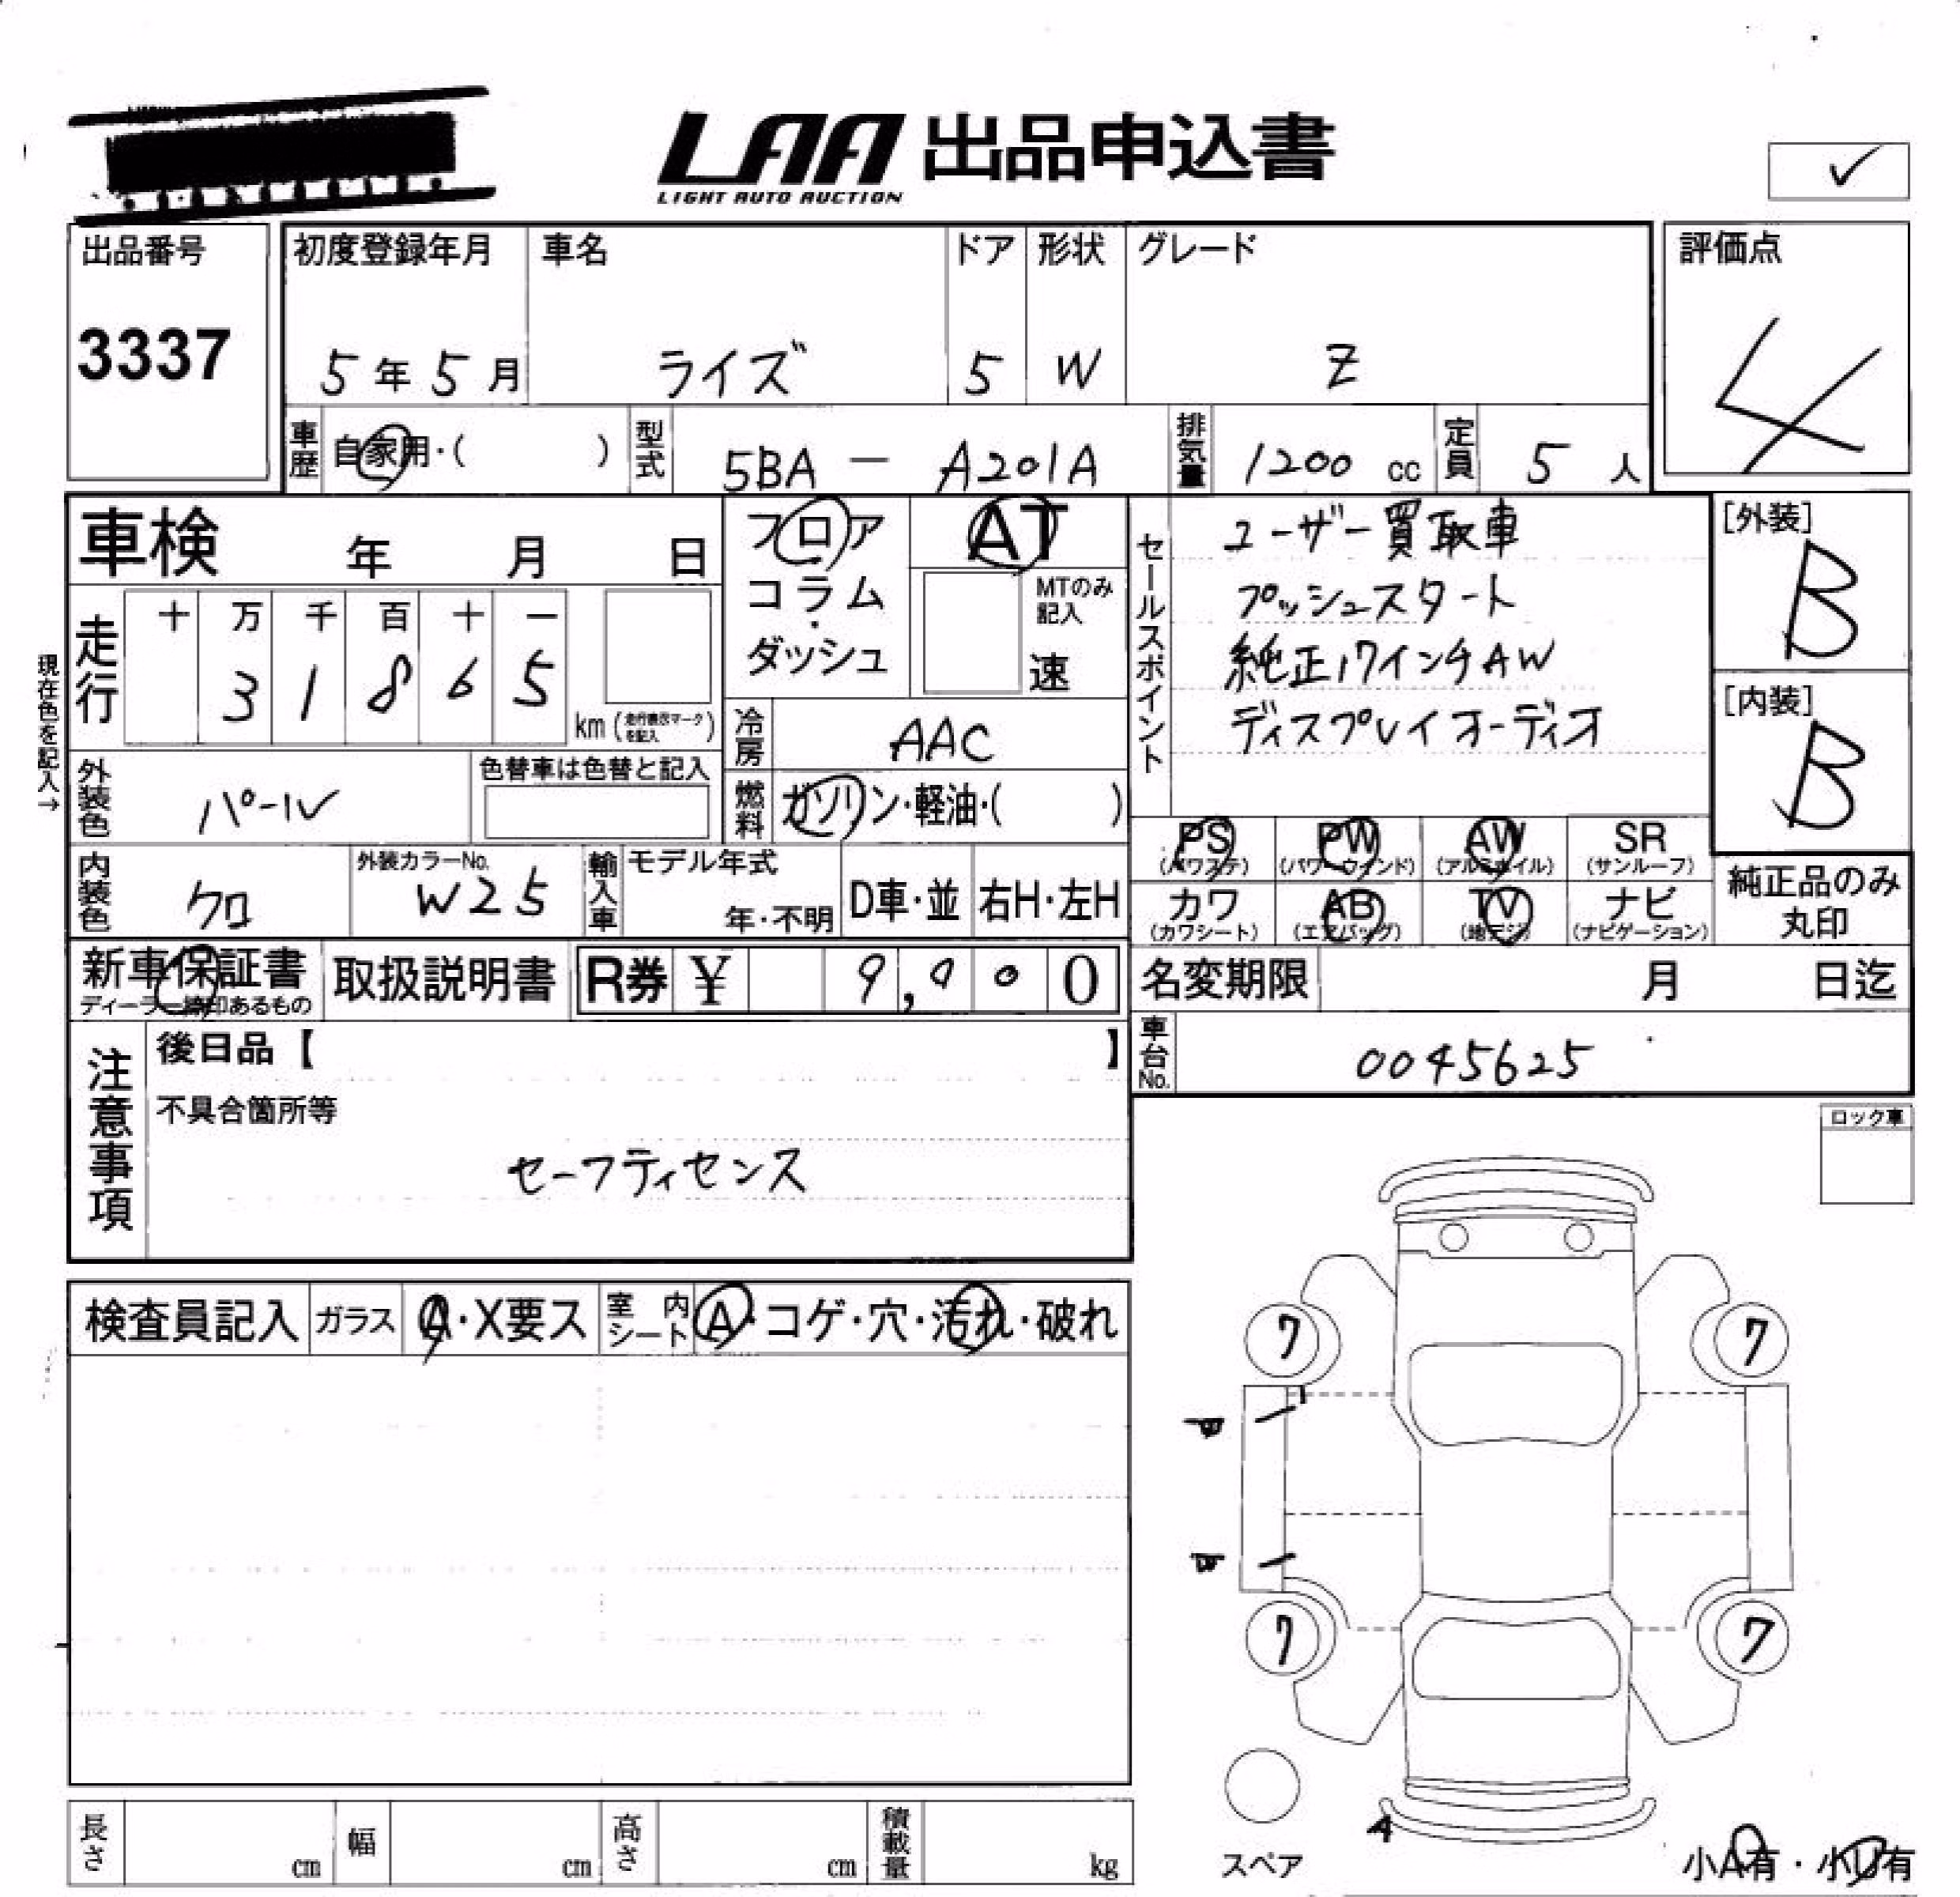 LAA 出品申込書
LIGHT AUTO AUCTION
✓
出品番号
3337
初度登録年月
5年5月
車名
ライズ
ドア
5
形状
W
グレード
Z
評価点
4
車歴
自家用・( )
型式
5BA - A201A
排気量
1200 cc
定員
5人
車検 年 月 日
フロア
コラム・
ダッシュ
AT
MTのみ
記入
速
セールスポイント
ユーザー買取車
プッシュスタート
純正17インチAW
ディスプレイオーディオ
[外装]
B
[内装]
B
現在色を記入→
走行
十 万 千 百 十 一
3 1 8 6 5
km (走行表示マークを記入)
冷房
AAC
外装色
パール
色替車は色替と記入
燃料
ガソリン・軽油・( )
PS (パワステ)
PW (パワーウィンド)
AW (アルミホイル)
SR (サンルーフ)
カワ (カワシート)
AB (エアバッグ)
TV (地デジ)
ナビ (ナビゲーション)
純正品のみ
丸印
内装色
クロ
外装カラーNo.
W25
輸入車
モデル年式
年・不明
D車・並
右H・左H
新車保証書
取扱説明書
R券 ¥ 9,900
名変期限 月 日迄
車台No.
0045625
注意事項
後日品【 】
不具合箇所等
セーフティセンス
ロック車
検査員記入
ガラス
A・X要ス
室内
シート
A・コゲ・穴・汚れ・破れ
7
7
7
7
スペア
A
小A有・小U有
長さ cm
幅 cm
高さ cm
積載量 kg